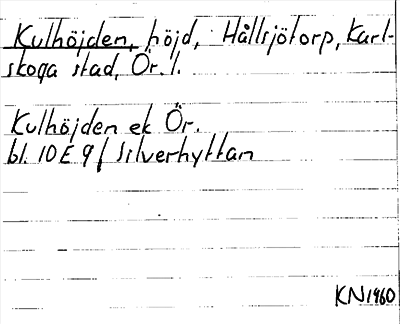 Kulhöjden, höjd, Hållsjötorp, Karl-
skoga stad, Ör. l.
Kulhöjden ek Ör.
bl. 10E 9f Silverhyttan
KN1960